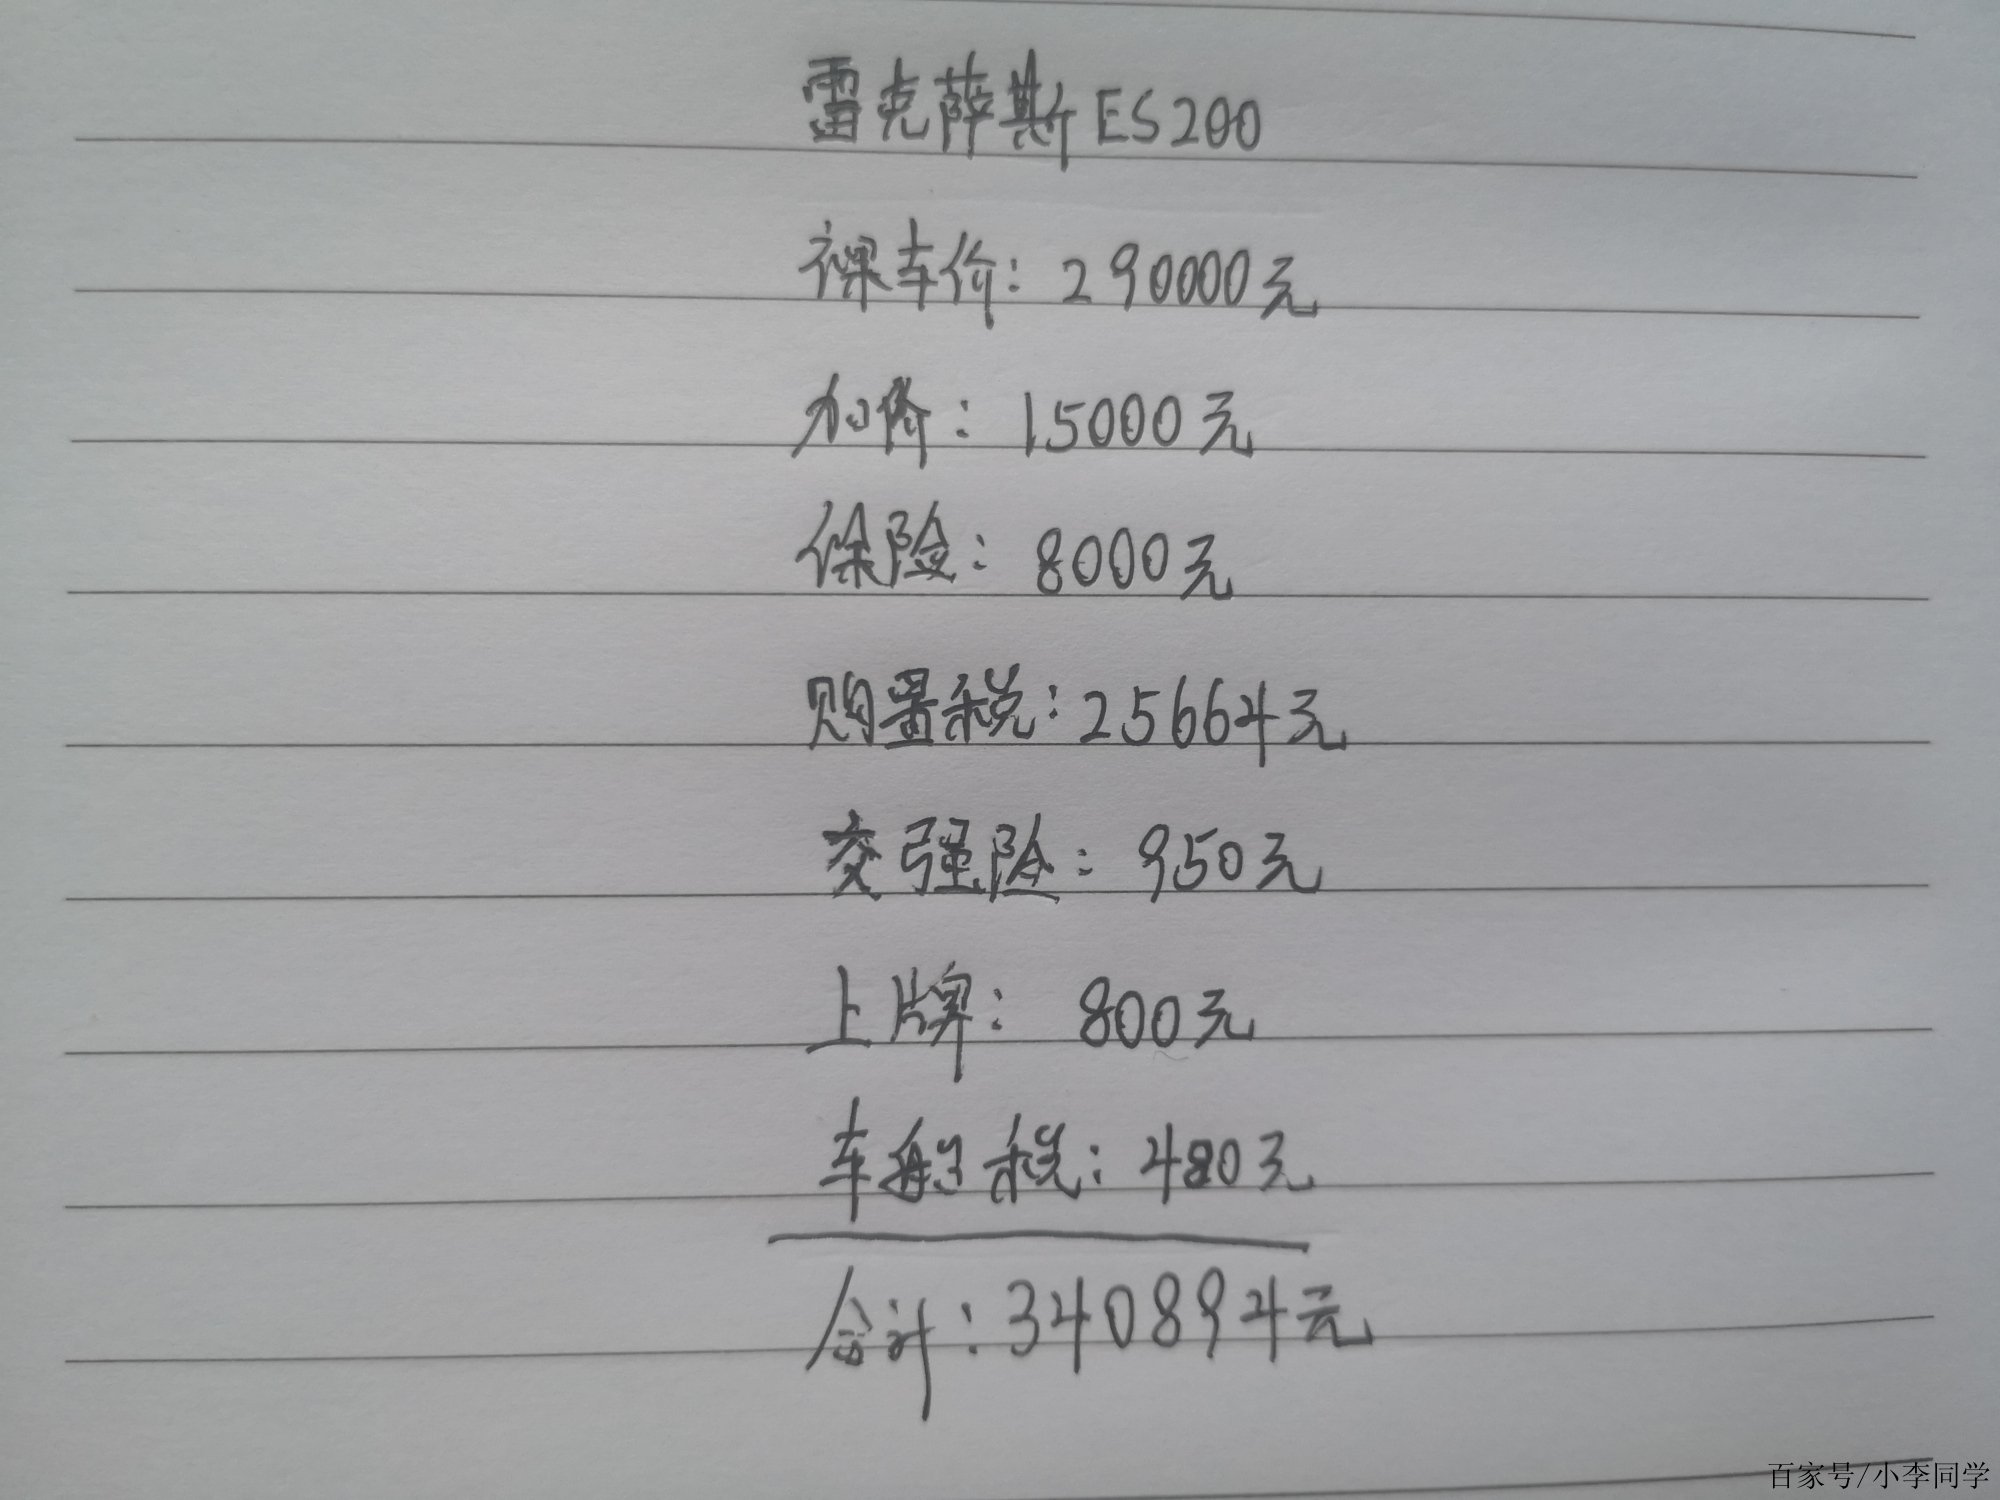 雷克萨斯ES200
裸车价：290000元
加价：15000元
保险：8000元
购置税：25664元
交强险：950元
上牌：800元
车船税：480元
合计：340894元
百家号/小李同学